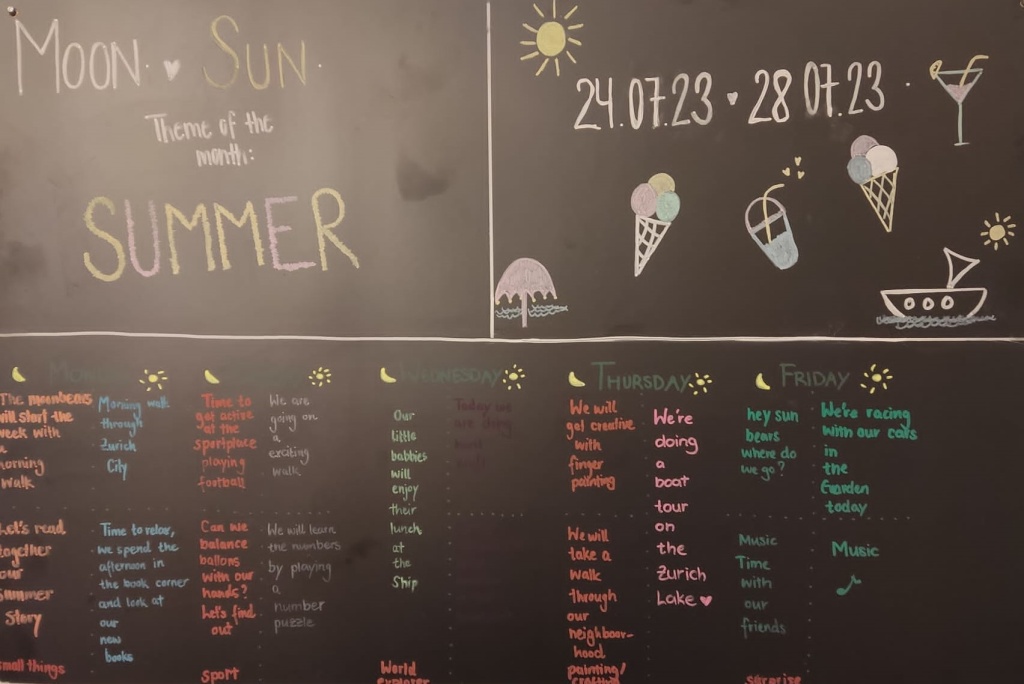 MOON ♥ SUN
Theme of the
month:
SUMMER
24.07.23 ♥ 28.07.23
MONDAY
The moonbears
will start the
week with
a
morning
walk
Morning walk
through
Zurich
City
Let's read
together
our
Summer
Story
Time to relax,
we spend the
afternoon in
the book corner
and look at
our
new
books
small things
Time to
get active
at the
sportplace
playing
football
We are
going on
a
exciting
walk
Can we
balance
ballons
with our
hands?
Let's find
out
We will learn
the numbers
by playing
a
number
puzzle
sport
WEDNESDAY
Our
little
babbies
will
enjoy
their
lunch
at
the
Ship
Today we
are doing
World
explorer
THURSDAY
We will
get creative
with
finger
painting
We're
doing
a
boat
tour
on
the
Zurich
Lake ♥
We will
take a
walk
through
our
neighbour-
hood
painting/
creative
FRIDAY
hey sun
bears
where do
we go?
We're racing
with our cars
in
the
Garden
today
Music
Time
with
our
friends
Music
surprise